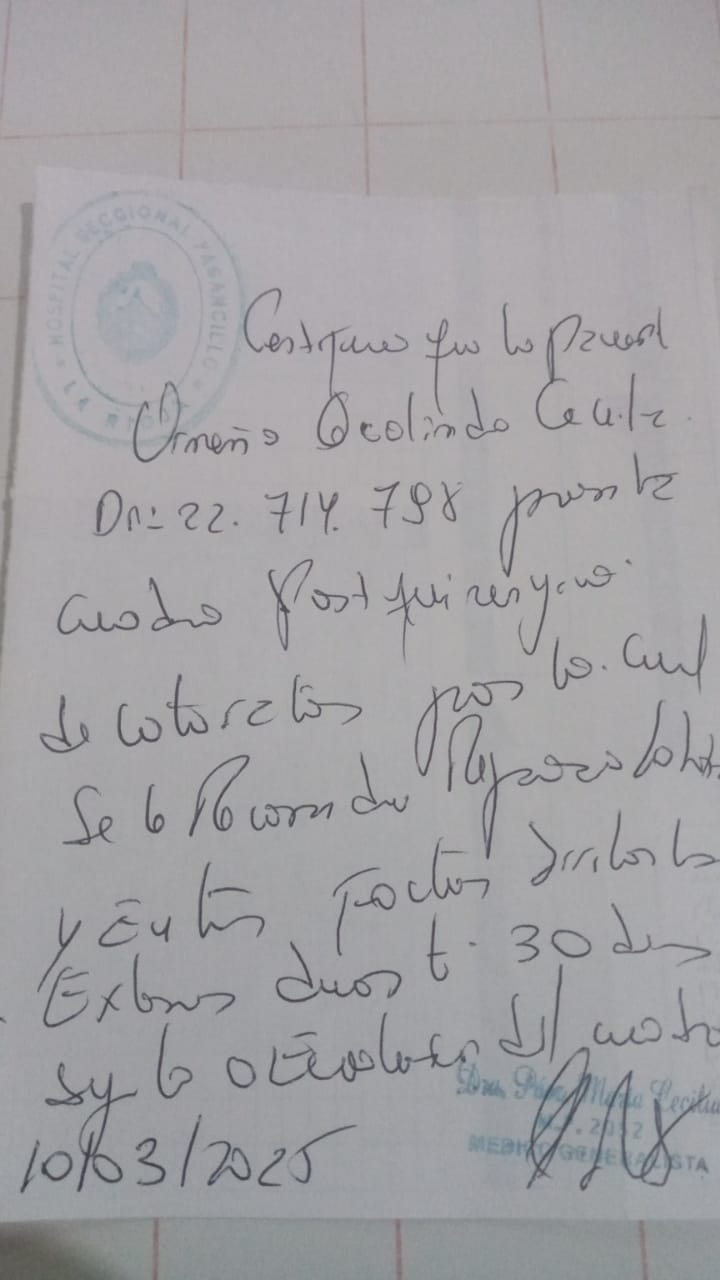 HOSPITAL SECCIONAL PAGANCILLO
LA RIOJA
Certifico que la paciente
Ormeño Deolinda
DNI: 22.714.798 presenta
cuadro Postquirurgico
de cataratas por lo cual
Se le Recomienda Reposo laboral
y Evitar Factores irritantes
Externos durante 30 dias
según la evolucion del cuadro
10/03/2025
Dra. María Cecilia
M.P. 2052
MEDICO GENERALISTA